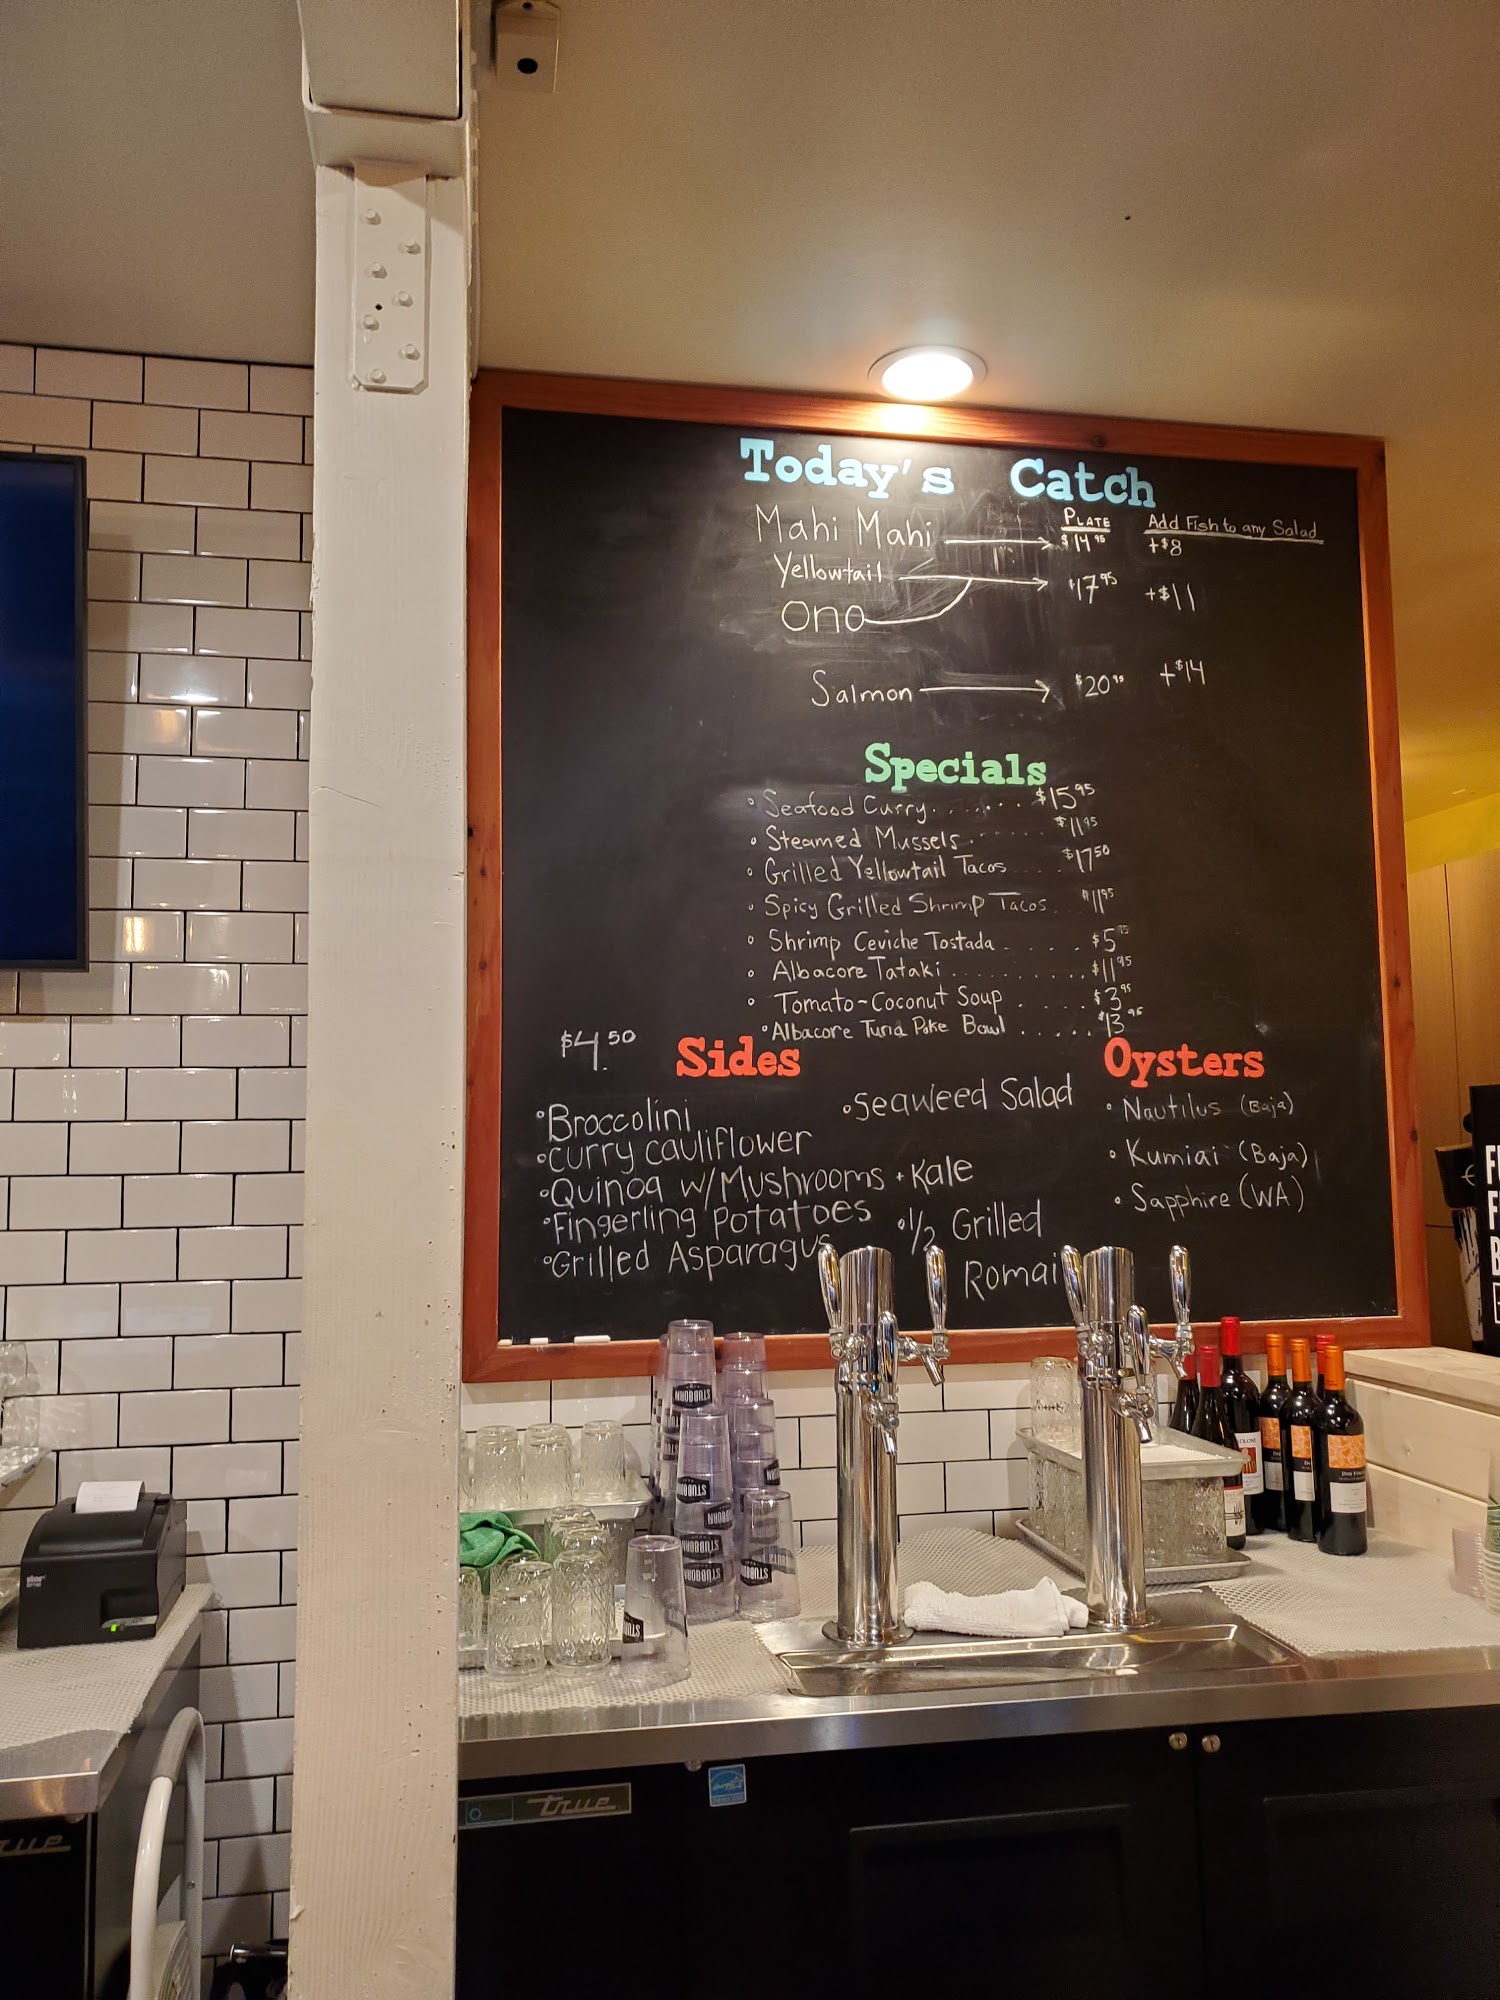 Today's Catch
PLATE Add Fish to any Salad
Mahi Mahi $14 95 +$8
Yellowtail $17 95 +$11
Ono
Salmon $20 95 +$14
Specials
Seafood Curry....... $15 95
Steamed Mussels...... $11 95
Grilled Yellowtail Tacos .... $17 50
Spicy Grilled Shrimp Tacos.. $11 95
Shrimp Ceviche Tostada..... $5 95
Albacore Tataki........... $11 95
Tomato-Coconut Soup..... $3 95
Albacore Tuna Poke Bowl..... $13 95
$4.50 Sides
Broccolini
Curry cauliflower
Quinoa w/Mushrooms + Kale
Fingerling Potatoes
Grilled Asparagus
Seaweed Salad
1/2 Grilled
Romai
Oysters
Nautilus (Baja)
Kumiai (Baja)
Sapphire (WA)
STUBBORN
STUBBORN
STUBBORN
STUBBORN
star
true
true